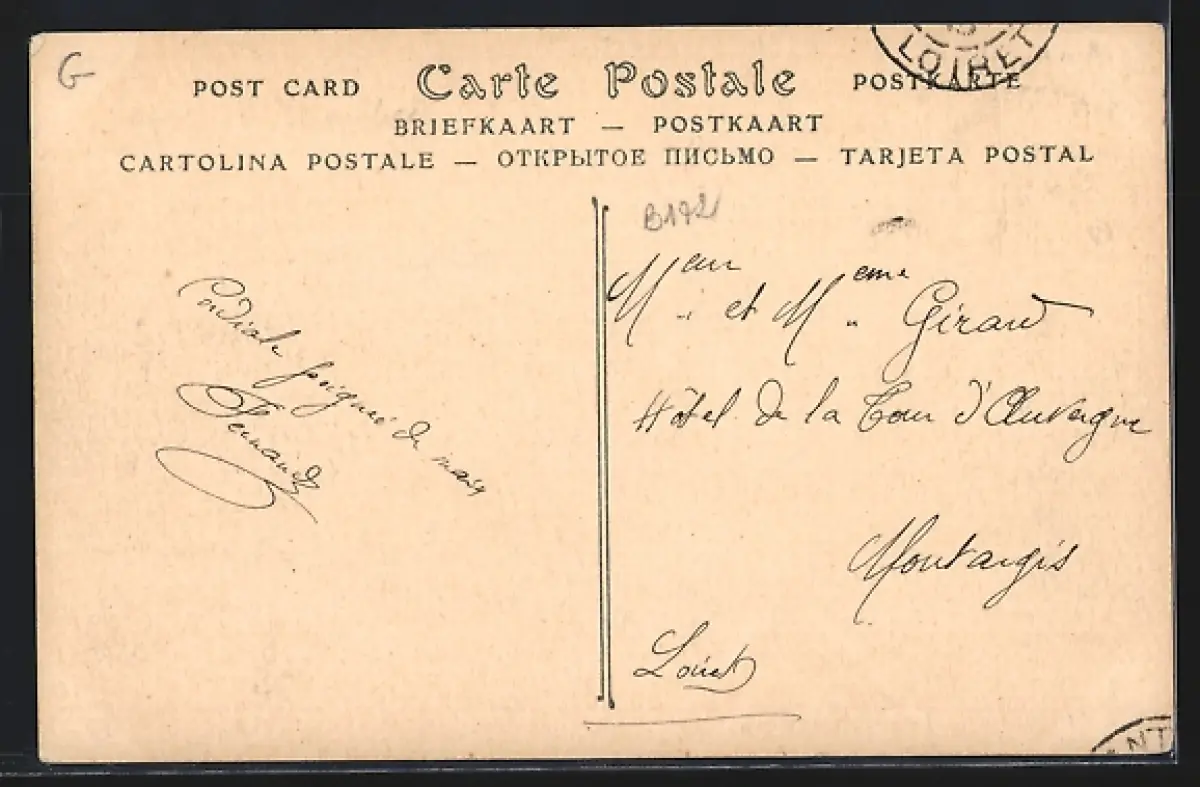 G
LOIRET
POST CARD Carte Postale POSTKARTE
BRIEFKAART — POSTKAART
CARTOLINA POSTALE — ОТКРЫТОЕ ПИСЬМО — TARJETA POSTAL
B172
Cordiale poignée de main
Fernand
Meur et Meme Girard
Hôtel de la Tour d'Auvergne
Montargis
Loiret
NT